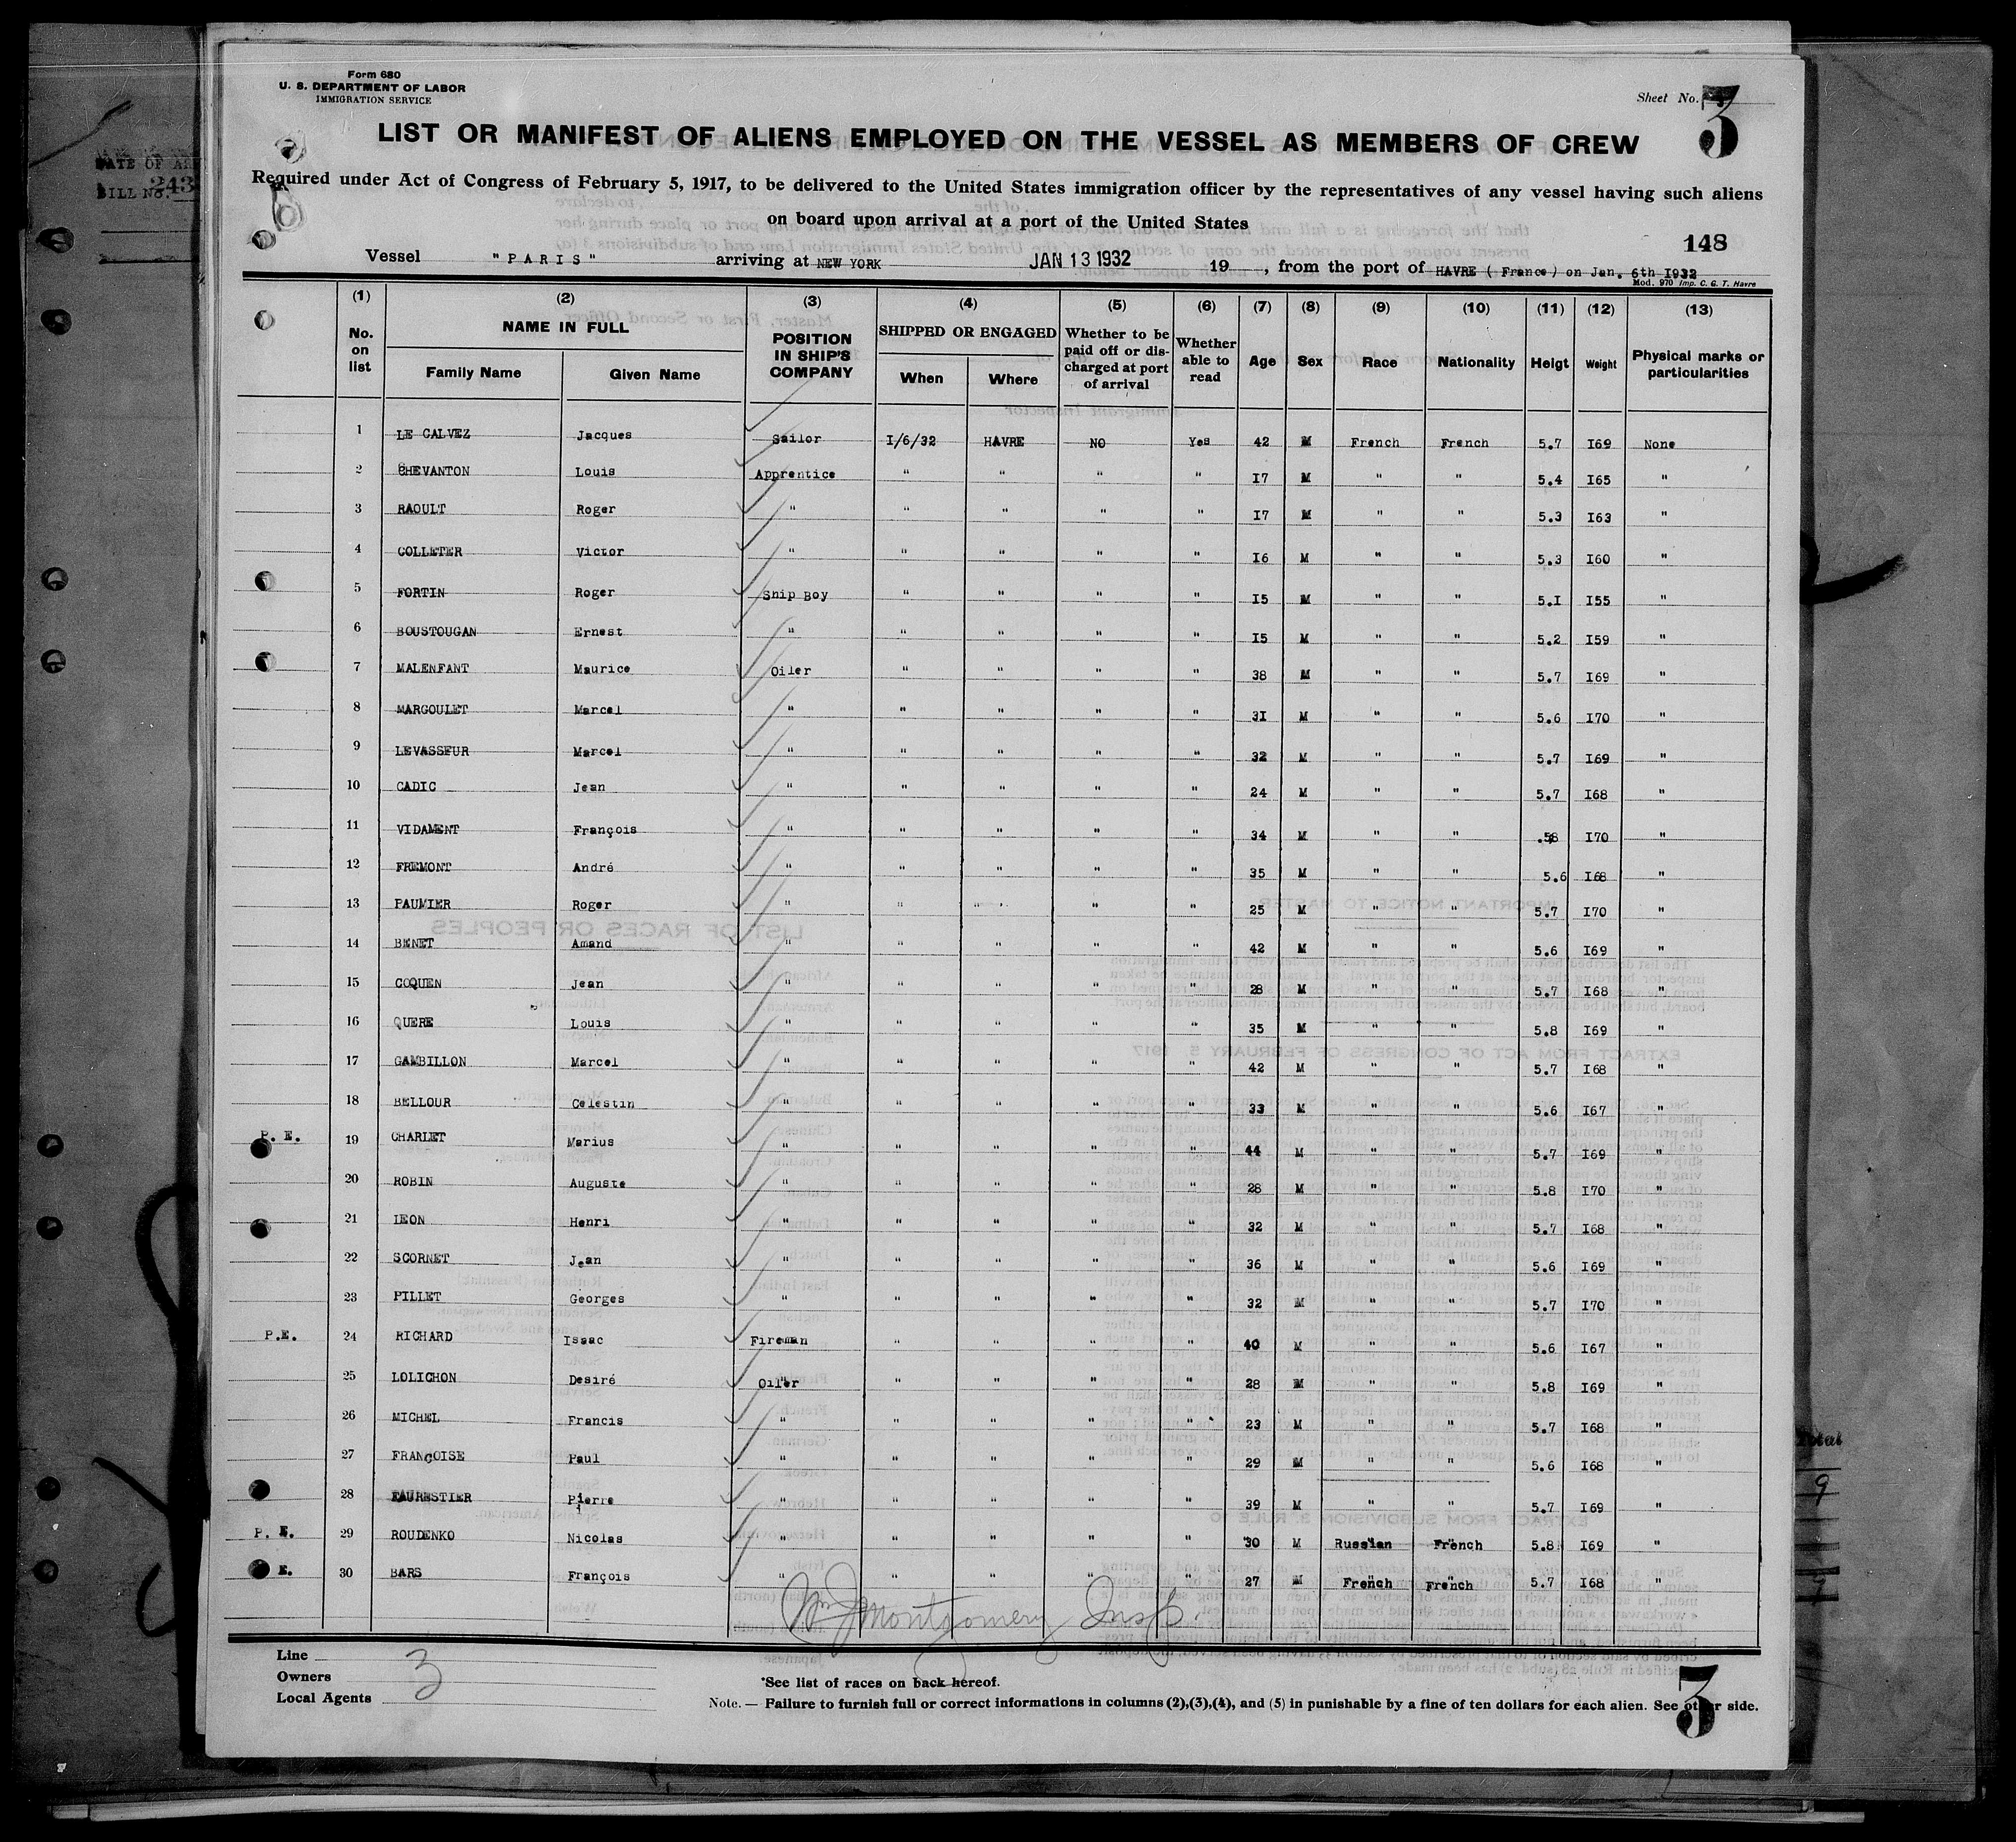 Form 680
U. S. DEPARTMENT OF LABOR
IMMIGRATION SERVICE
Sheet No. 3
LIST OR MANIFEST OF ALIENS EMPLOYED ON THE VESSEL AS MEMBERS OF CREW
Required under Act of Congress of February 5, 1917, to be delivered to the United States immigration officer by the representatives of any vessel having such aliens
on board upon arrival at a port of the United States
148
Vessel "PARIS" arriving at NEW YORK JAN 13 1932 19 , from the port of HAVRE ( France ) on Jan. 6th I932
Mod. 970 Imp. C. G. T. Havre
(1) (2) (3) (4) (5) (6) (7) (8) (9) (10) (11) (12) (13)
No. on list NAME IN FULL Family Name Given Name POSITION IN SHIP'S COMPANY SHIPPED OR ENGAGED When Where Whether to be paid off or discharged at port of arrival Whether able to read Age Sex Race Nationality Heigt Weight Physical marks or particularities
1 LE CALVEZ Jacques Sailor I/6/32 HAVRE NO Yes 42 M French French 5.7 I69 None
2 CHEVANTON Louis Apprentice " " " " I7 M " " 5.4 I65 "
3 RAOULT Roger " " " " " I7 M " " 5.3 I63 "
4 COLLETER Victor " " " " " I6 M " " 5.3 I60 "
5 FORTIN Roger Ship Boy " " " " I5 M " " 5.I I55 "
6 BOUSTOUGAN Ernest " " " " " I5 M " " 5.2 I59 "
7 MALENFANT Maurice Oiler " " " " 38 M " " 5.7 I69 "
8 MARGOULET Marcel " " " " " 3I M " " 5.6 I70 "
9 LEVASSEUR Marcel " " " " " 32 M " " 5.7 I69 "
10 CADIC Jean " " " " " 24 M " " 5.7 I68 "
11 VIDAMENT François " " " " " 34 M " " I70 "
12 FREMONT André " " " " " 35 M " " 5.6 I68 "
13 PAUMIER Roger " " " " " 25 M " " 5.7 I70 "
14 BENET Amand " " " " " 42 M " " 5.6 I69 "
15 COQUEN Jean " " " " " 28 M " " 5.7 I68 "
16 QUERE Louis " " " " " 35 M " " 5.8 I69 "
17 GAMBILLON Marcel " " " " " 42 M " " 5.7 I68 "
18 BELLOUR Celestin " " " " " 33 M " " 5.6 I67 "
P. E. 19 CHARLET Marius " " " " " 44 M " " 5.7 I69 "
20 ROBIN Auguste " " " " " 28 M " " 5.8 I70 "
21 LEON Henri " " " " " 32 M " " 5.7 I68 "
22 SCORNET Jean " " " " " 36 M " " 5.6 I69 "
23 PILLET Georges " " " " " 32 M " " 5.7 I70 "
P.E. 24 RICHARD Isaac Fireman " " " " 40 M " " 5.6 I67 "
25 LOLICHON Desiré Oiler " " " " 28 M " " 5.8 I69 "
26 MICHEL Francis " " " " " 23 M " " 5.7 I68 "
27 FRANÇOISE Paul " " " " " 29 M " " 5.6 I68 "
28 Pierre " " " " " 39 M " " 5.7 I69 "
P. E. 29 ROUDENKO Nicolas " " " " " 30 M Russian French 5.8 I69 "
E. 30 BARS François " " " " " 27 M French French 5.7 I68 "
Wm J Montgomery Insp.
Line
Owners 3
Local Agents
*See list of races on back hereof.
Note. — Failure to furnish full or correct informations in columns (2),(3),(4), and (5) in punishable by a fine of ten dollars for each alien. See other side.
3